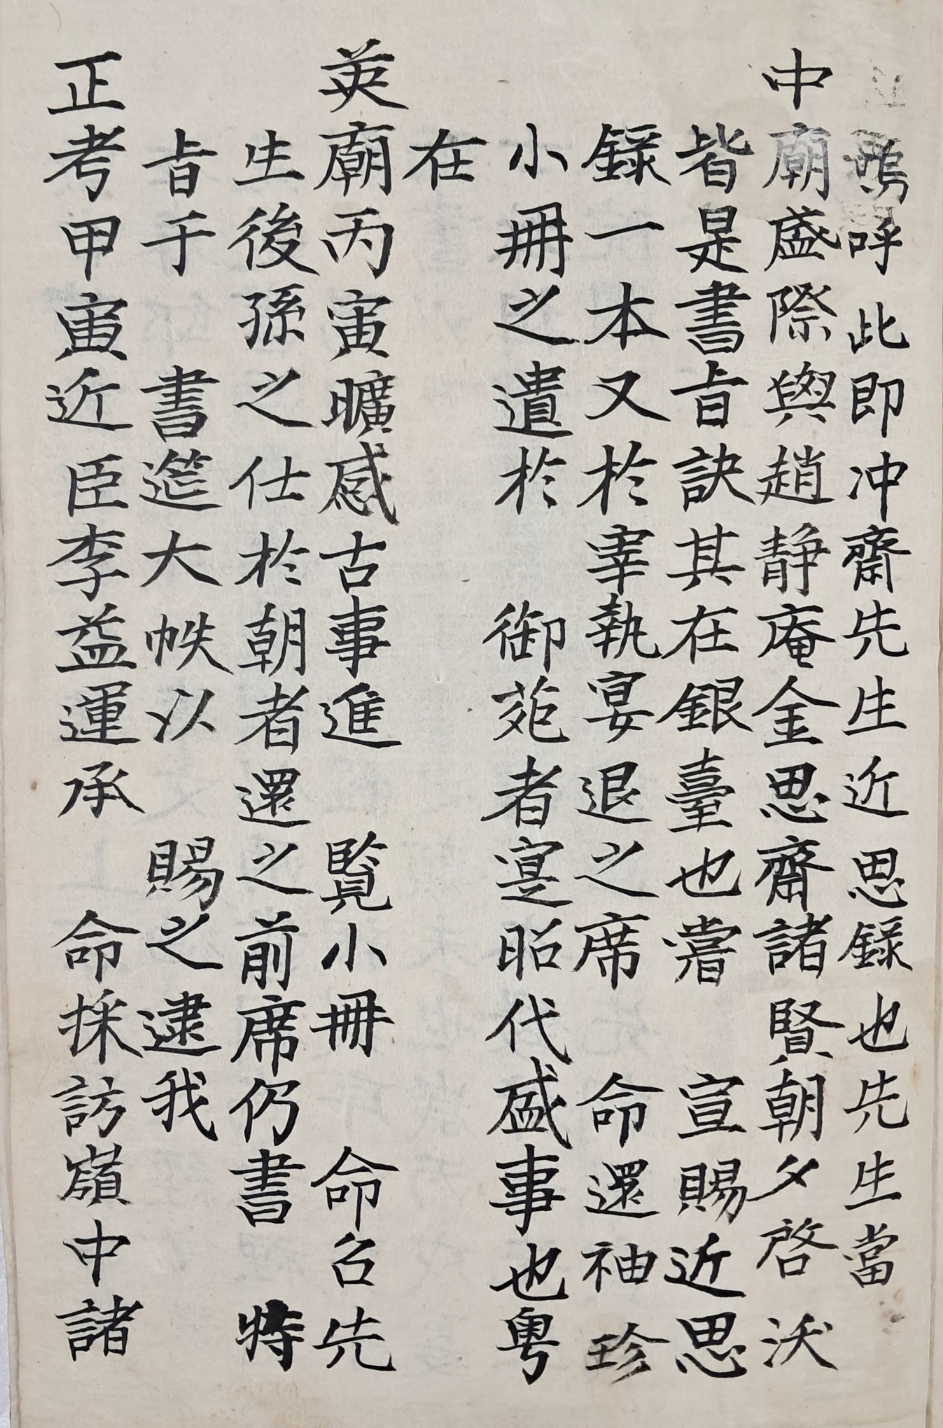 嗚呼此即冲齋先生近思錄也先生當
中廟盛際與趙静庵金思齋諸賢朝夕啓沃
皆是書旨訣其在銀臺也嘗 宣賜近思
錄一本又於宰執宴退之席 命還袖珍
小冊之遺於 御苑者寔昭代盛事也粤
在
英廟丙寅曠感古事進 覽小冊 命召先
生後孫之仕於朝者還之前席仍書 特
旨于 書筵大帙以 賜之逮我
正考甲寅近臣李益運承 命採訪嶺中諸